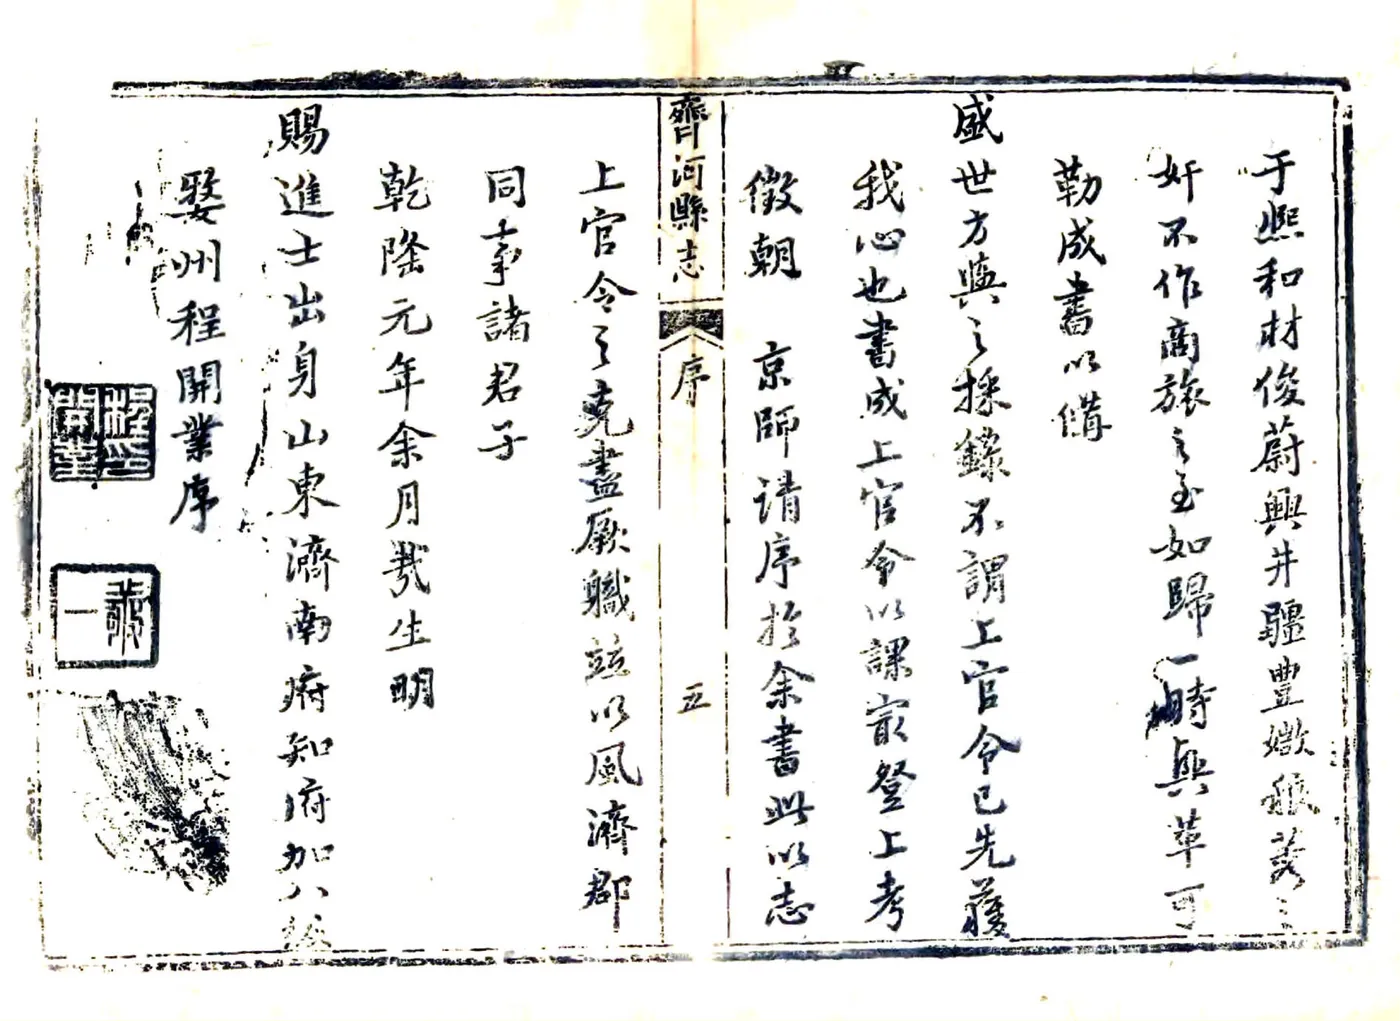 于熙和材俊蔚興井疆豊
奸不作商旅之至如歸一時興革可
勒成書以備
盛世方輿之採錄不謂上官令已先獲
我心也書成上官令以課最登上考
徵朝 京師請序於余書此以志
齊河縣志 序 五
上官令之克盡厥職並以風濟郡
同事諸君子
乾隆元年余月哉生明
賜進士出身山東濟南府知府加八級
婺州程開業序